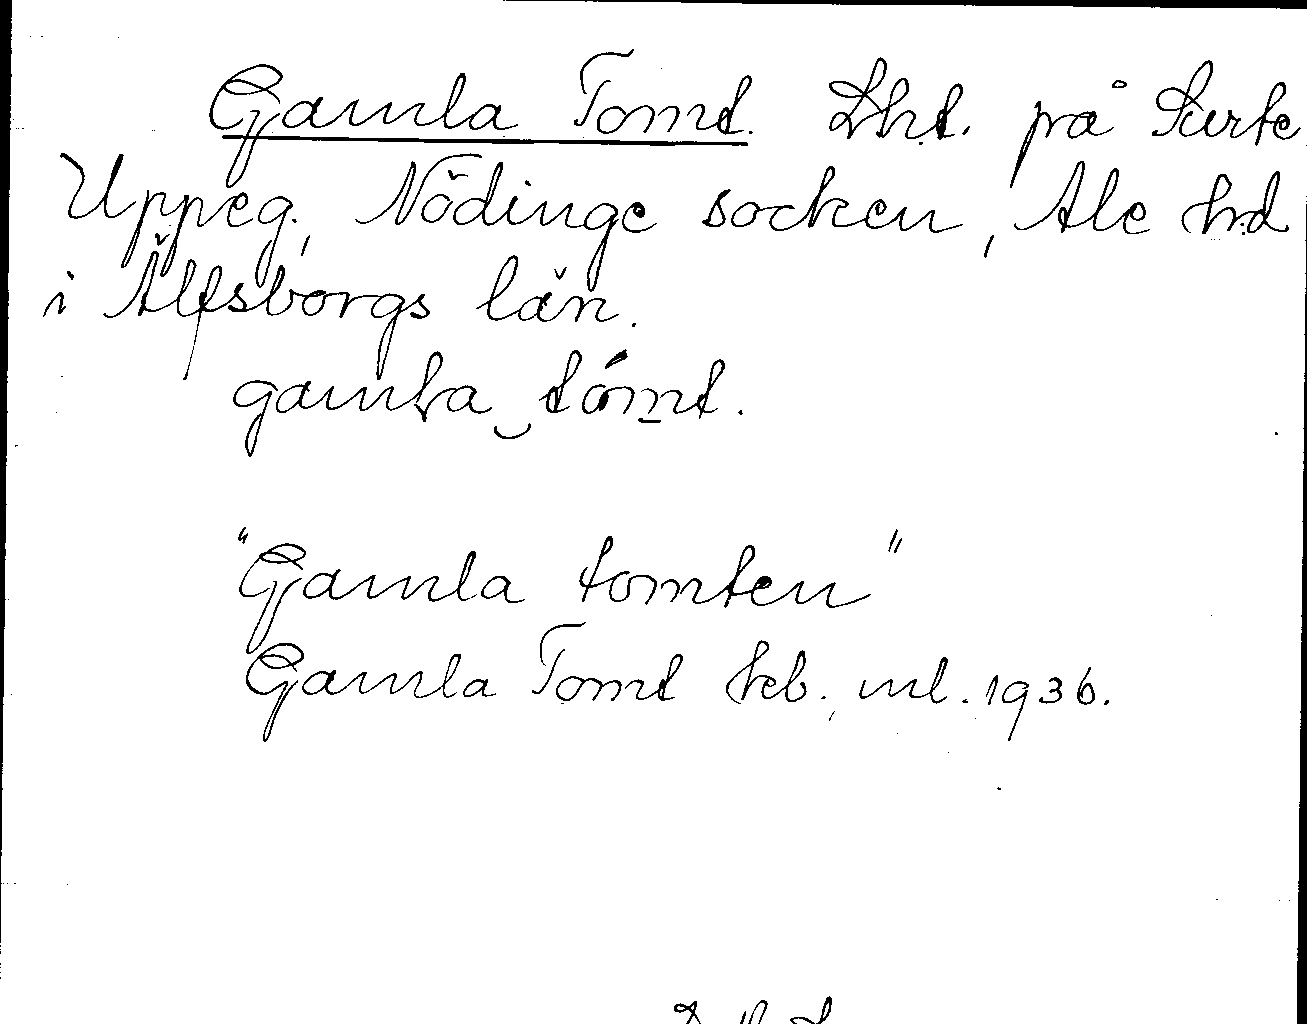 Gamla Tomt. Lht. på Surte
Uppeg., Nödinge socken, Ale hd
i Älfsborgs län.
gamla tómt.
"Gamla tomten"
Gamla Tomt kb. ml. 1936.